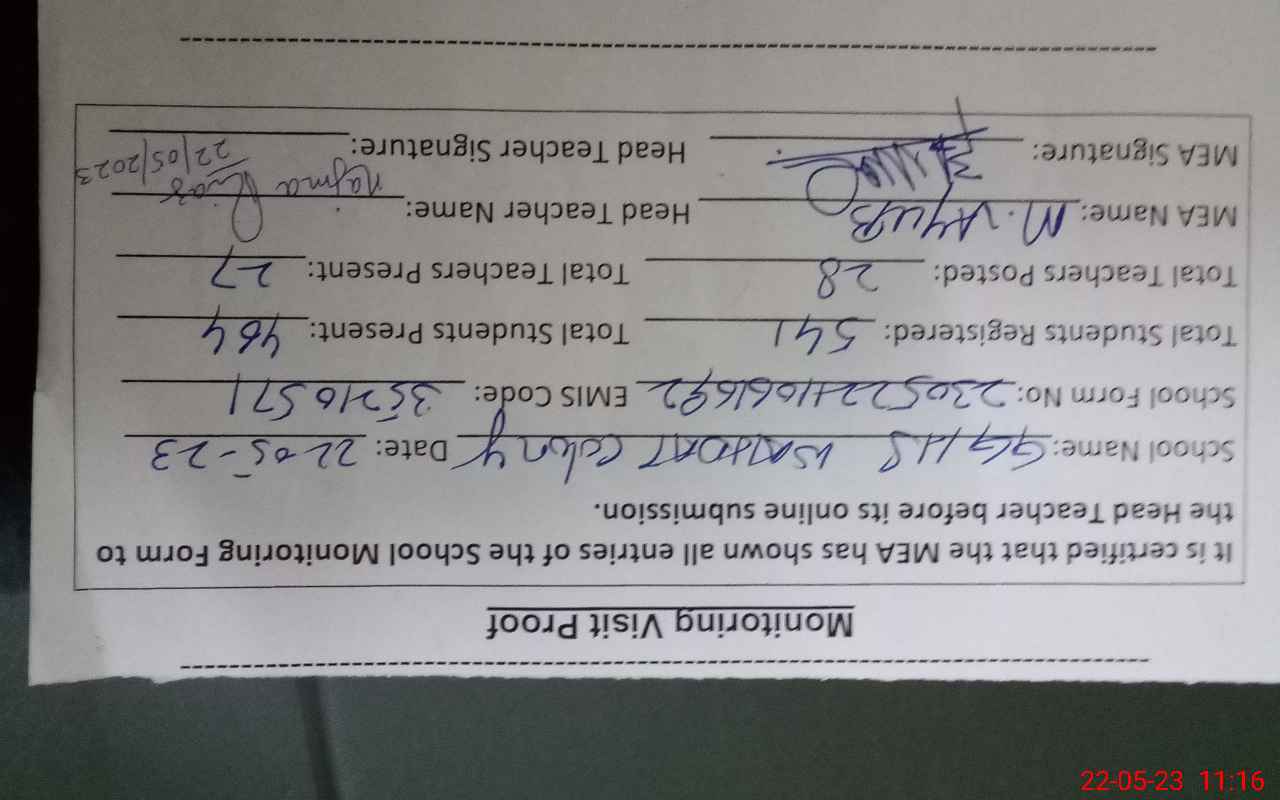 Monitoring Visit Proof
It is certified that the MEA has shown all entries of the School Monitoring Form to
the Head Teacher before its online submission.
School Name: GGHS WAHDAT Colony Date: 22-05-23
School Form No: EMIS Code: 35210571
Total Students Registered: 541 Total Students Present: 464
Total Teachers Posted: 28 Total Teachers Present: 27
MEA Name: M. AYUB Head Teacher Name: Najma Riaz
MEA Signature: Head Teacher Signature: 22/05/2023
22-05-23 11:16